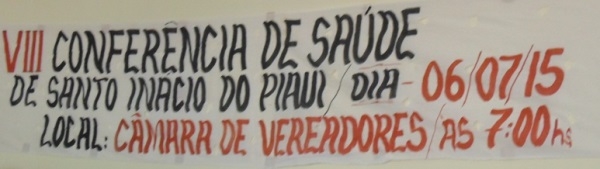 VIII CONFERÊNCIA DE SAÚDE
DE SANTO INACIO DO PIAUI / DIA - 06/07/15
LOCAL: CÂMARA DE VEREADORES / AS 7:00hs